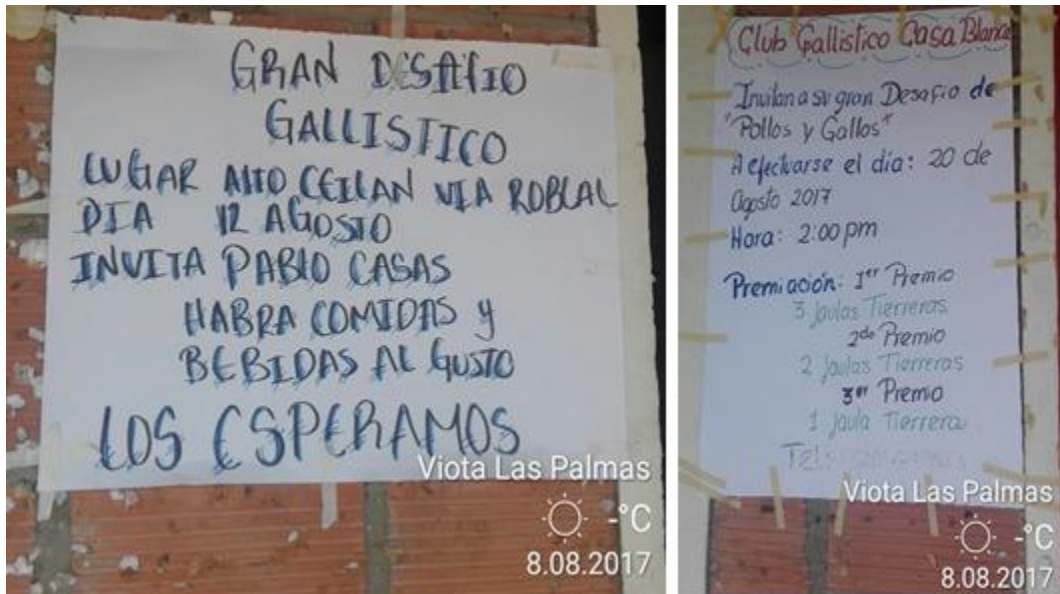 GRAN DESAFIO
GALLISTICO
LUGAR ALTO CEILAN VIA ROBLAL
DIA 12 AGOSTO
INVITA PABLO CASAS
HABRA COMIDAS y
BEBIDAS AL GUSTO
LOS ESPERAMOS
Viota Las Palmas
-°C
8.08.2017
Club Gallistico Casa Blanca
Invitan a su gran Desafio de
"Pollos y Gallos"
A efectuarse el día: 20 de
Agosto 2017
Hora: 2:00 pm
Premiación: 1er Premio
3 Jaulas Tierreras
2do Premio
2 Jaulas Tierreras
3er Premio
1 Jaula Tierrera
Tel:
Viota Las Palmas
-°C
8.08.2017